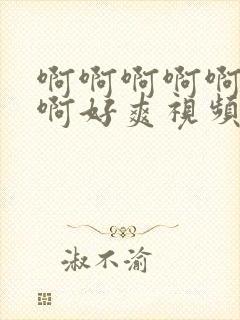 啊啊啊啊啊
啊好爽视频
淑不渝